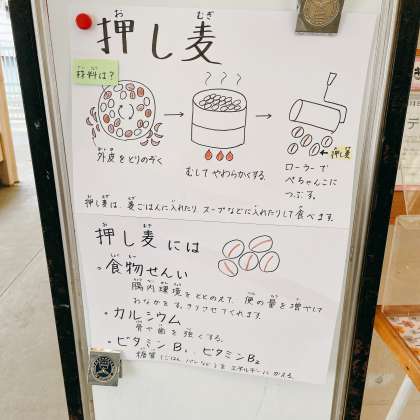 押し麦
材料は?
外皮をとりのぞく
むしてやわらかくする。
ローラーで
ぺちゃんこに
つぶす。
←押し麦
押し麦は、麦ごはんに入れたり スープなどに入れたりして食べます。
押し麦には
・食物せんい
腸内環境をととのえて、便の量を増やして
おなかをすっきりさせてくれます。
・カルシウム
骨や歯を強くする。
・ビタミンB₁、ビタミンB₂
糖質(ごはん、パンなど)をエネルギーにかえる。